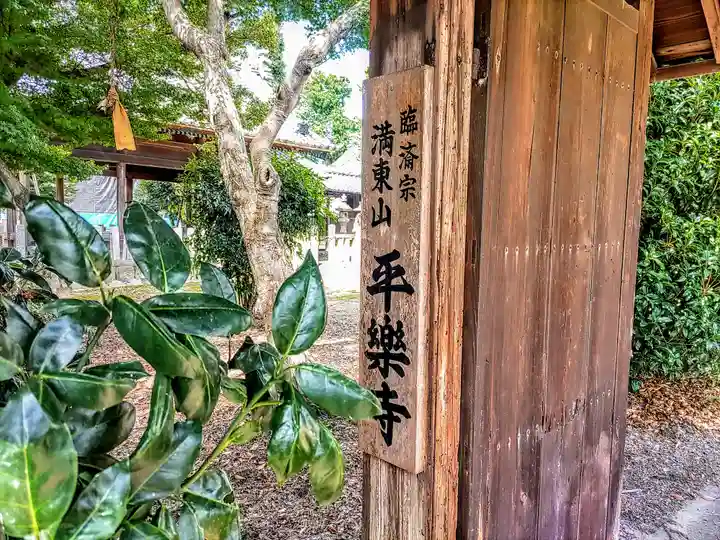 臨済宗
満東山
平樂寺